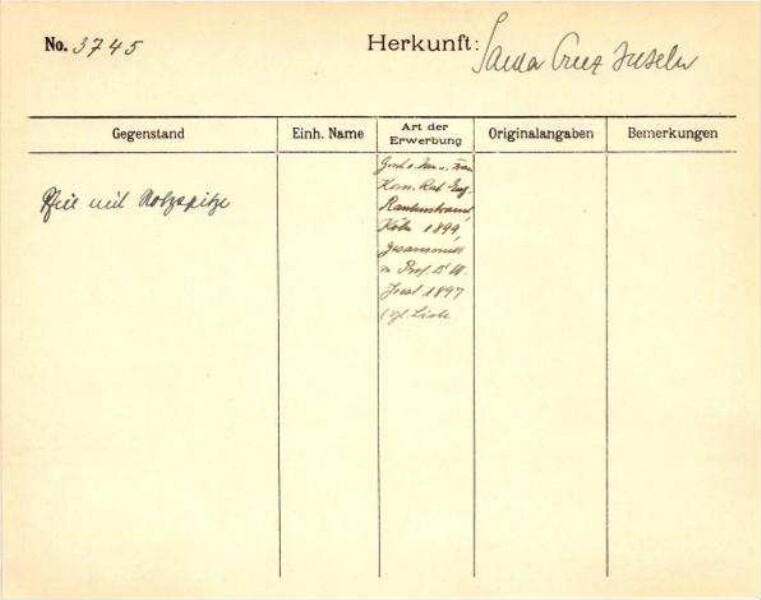 No. 3745
Herkunft: Santa Cruz Inseln
Gegenstand
Einh. Name
Art der
Erwerbung
Originalangaben
Bemerkungen
Pfeil mit Holzspitze
Gesch. v. Frau
Kom. Rat Eug.
Rautenstrauch,
Köln 1899,
gesammelt
v. Prof. Dr W.
Joest 1897
(vgl. Liste